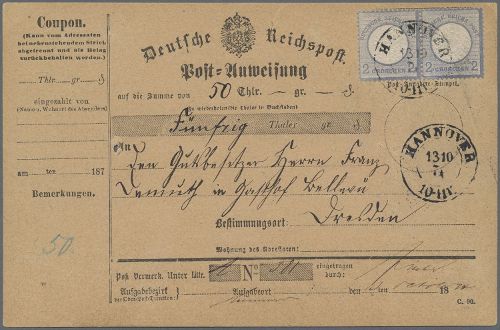 Coupon.
(Kann vom Adressaten
bei nebenstehendem Strich
abgetrennt und als Beleg
zurückbehalten werden.)
Thlr. gr. ₰
eingezahlt von
(Name u. Wohnort des Absenders)
am ten 187
Bemerkungen.
50
Deutsche Reichspost.
Post-Anweisung
auf die Summe von 50 Thlr. gr. ₰
(In wiederholen die Thaler in Buchstaben)
Fünfzig Thaler gr ₰
An
den Gutsbesitzer Herrn Franz
Demuth in Gasthof Bellevü
Bestimmungsort: Dresden
Wohnung des Adressaten:
Post Vermerk. Unter Litt. N° eingetragen
durch:
Aufgabebezirk Aufgabeort den ten 18
(Ober-Post-Direction)
C. 90.
2 GROSCHEN 2
2 GROSCHEN 2
HANNOVER
1310
HANNOVER
1310
74
10-11V.